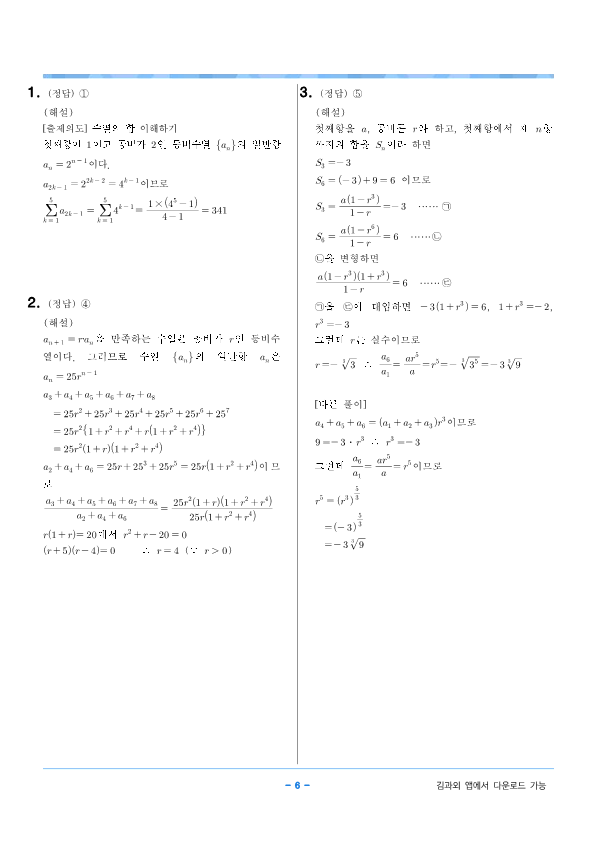 1. (정답) ①
(해설)
[출제의도] 수열의 합 이해하기
첫째항이 1이고 공비가 2인 등비수열 {aₙ}의 일반항
aₙ = 2ⁿ⁻¹이다.
a₂ₖ₋₁ = 2²ᵏ⁻² = 4ᵏ⁻¹이므로
∑ₖ₌₁⁵ a₂ₖ₋₁ = ∑ₖ₌₁⁵ 4ᵏ⁻¹ = 1×(4⁵−1)/(4−1) = 341
2. (정답) ④
(해설)
aₙ₊₁ = raₙ을 만족하는 수열은 공비가 r인 등비수
열이다. 그러므로 수열 {aₙ}의 일반항 aₙ은
aₙ = 25rⁿ⁻¹
a₃+a₄+a₅+a₆+a₇+a₈
= 25r²+25r³+25r⁴+25r⁵+25r⁶+25⁷
= 25r²{1+r²+r⁴+r(1+r²+r⁴)}
= 25r²(1+r)(1+r²+r⁴)
a₂+a₄+a₆ = 25r+25³+25r⁵ = 25r(1+r²+r⁴)이므
로
(a₃+a₄+a₅+a₆+a₇+a₈)/(a₂+a₄+a₆) = 25r²(1+r)(1+r²+r⁴)/25r(1+r²+r⁴)
r(1+r)=20에서 r²+r−20=0
(r+5)(r−4)=0 ∴ r=4 (∵ r>0)
3. (정답) ⑤
(해설)
첫째항을 a, 공비를 r와 하고, 첫째항에서 제 n항
까지의 합을 Sₙ이라 하면
S₃=−3
S₆=(−3)+9=6 이므로
S₃ = a(1−r³)/(1−r) = −3 ⋯⋯ ㉠
S₆ = a(1−r⁶)/(1−r) = 6 ⋯⋯㉡
㉡을 변형하면
a(1−r³)(1+r³)/(1−r) = 6 ⋯⋯ ㉢
㉠을 ㉢에 대입하면 −3(1+r³)=6, 1+r³=−2,
r³=−3
그런데 r는 실수이므로
r=−∛3 ∴ a₆/a₁ = ar⁵/a = r⁵ = −∛3⁵ = −3∛9
[다른 풀이]
a₄+a₅+a₆ = (a₁+a₂+a₃)r³이므로
9=−3·r³ ∴ r³=−3
그런데 a₆/a₁ = ar⁵/a = r⁵이므로
r⁵ = (r³)^(5/3)
=(−3)^(5/3)
=−3∛9
− 6 −
김과외 앱에서 다운로드 가능